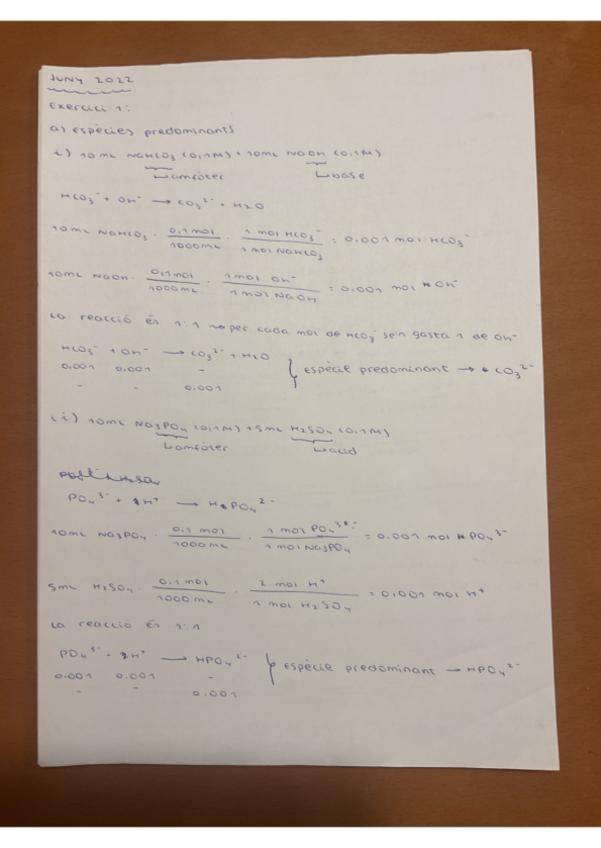 JUNY 2022
Exercici 1:
a) espècies predominants
i) 10 mL NaHCO₃ (0,1M) + 10mL NaOH (0.1M)
↳ amfòter ↳ base
HCO₃⁻ + OH⁻ → CO₃²⁻ + H₂O
10mL NaHCO₃ · 0.1 mol / 1000mL · 1 mol HCO₃⁻ / 1 mol NaHCO₃ = 0.001 mol HCO₃⁻
10mL NaOH · 0,1 mol / 1000mL · 1 mol OH⁻ / 1 mol NaOH = 0.001 mol OH⁻
La reacció és 1:1 → per cada mol de HCO₃⁻ se'n gasta 1 de OH⁻
HCO₃⁻ + OH⁻ → CO₃²⁻ + H₂O
0.001 0.001 - } espècie predominant → CO₃²⁻
- - 0.001
ii) 10mL Na₃PO₄ (0,1M) + 5mL H₂SO₄ (0,1M)
↳ amfòter ↳ àcid
PO₄³⁻ + H⁺ → HPO₄²⁻
10mL Na₃PO₄ · 0.1 mol / 1000mL · 1 mol PO₄³⁻ / 1 mol Na₃PO₄ = 0.001 mol PO₄³⁻
5mL H₂SO₄ · 0.1 mol / 1000 mL · 2 mol H⁺ / 1 mol H₂SO₄ = 0.001 mol H⁺
La reacció és 1:1
PO₄³⁻ + H⁺ → HPO₄²⁻ } espècie predominant → HPO₄²⁻
0.001 0.001 -
- - 0.001